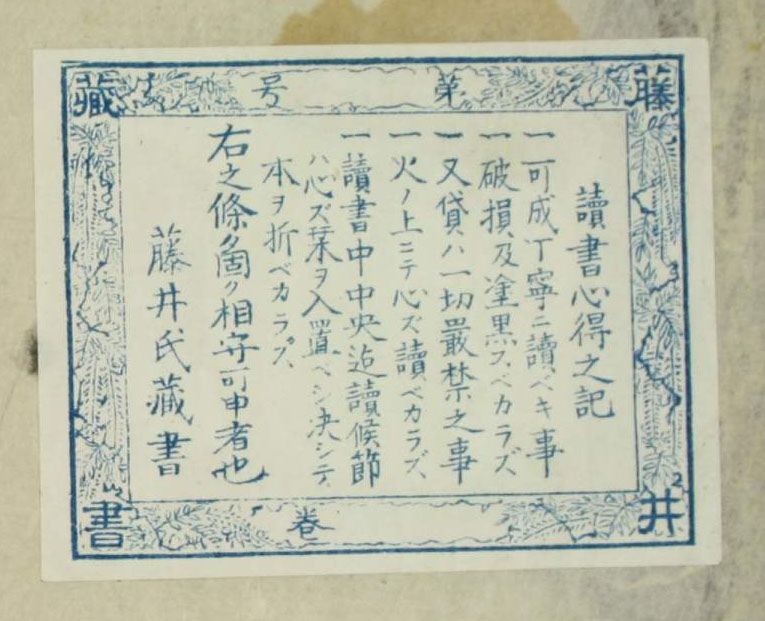 藤井
藏書
第
号
巻
讀書心得之記
一可成丁寧ニ讀ベキ事
一破損及塗黒スベカラズ
一又貸ハ一切嚴禁之事
一火ノ上ニテ心ズ讀ベカラズ
一讀書中中央迠讀候節
ハ心ズ栞ヲ入置ベシ决シテ
本ヲ折ベカラズ
右之條箇々相守可申者也
藤井氏藏書